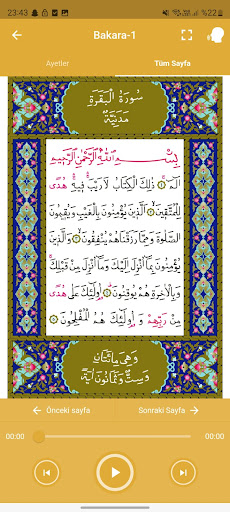 23:43
%22
Bakara-1
Ayetler
Tüm Sayfa
سُورَةُ الْبَقَرَةِ
مَدَنِيَّةٌ
بِسْمِ اللّٰهِ الرَّحْمٰنِ الرَّحِيمِ
الٓمٓ ۝١ ذٰلِكَ الْكِتَابُ لَا رَيْبَۚۛ فِيهِۚۛ هُدًى
لِلْمُتَّقِينَۙ ۝٢ اَلَّذِينَ يُؤْمِنُونَ بِالْغَيْبِ وَيُقِيمُونَ
الصَّلٰوةَ وَمِمَّا رَزَقْنَاهُمْ يُنْفِقُونَۙ ۝٣ وَالَّذِينَ
يُؤْمِنُونَ بِمَٓا اُنْزِلَ اِلَيْكَ وَمَٓا اُنْزِلَ مِنْ قَبْلِكَۚ
وَبِالْاٰخِرَةِ هُمْ يُوقِنُونَۜ ۝٤ اُو۬لٰٓئِكَ عَلٰى هُدًى
مِنْ رَبِّهِمْ وَاُو۬لٰٓئِكَ هُمُ الْمُفْلِحُونَ ۝٥
وَهِىَ مِائَتَانِ
وَسِتٌّ وَثَمَانُونَ اٰيَةً
Önceki sayfa
Sonraki Sayfa
00:00
00:00